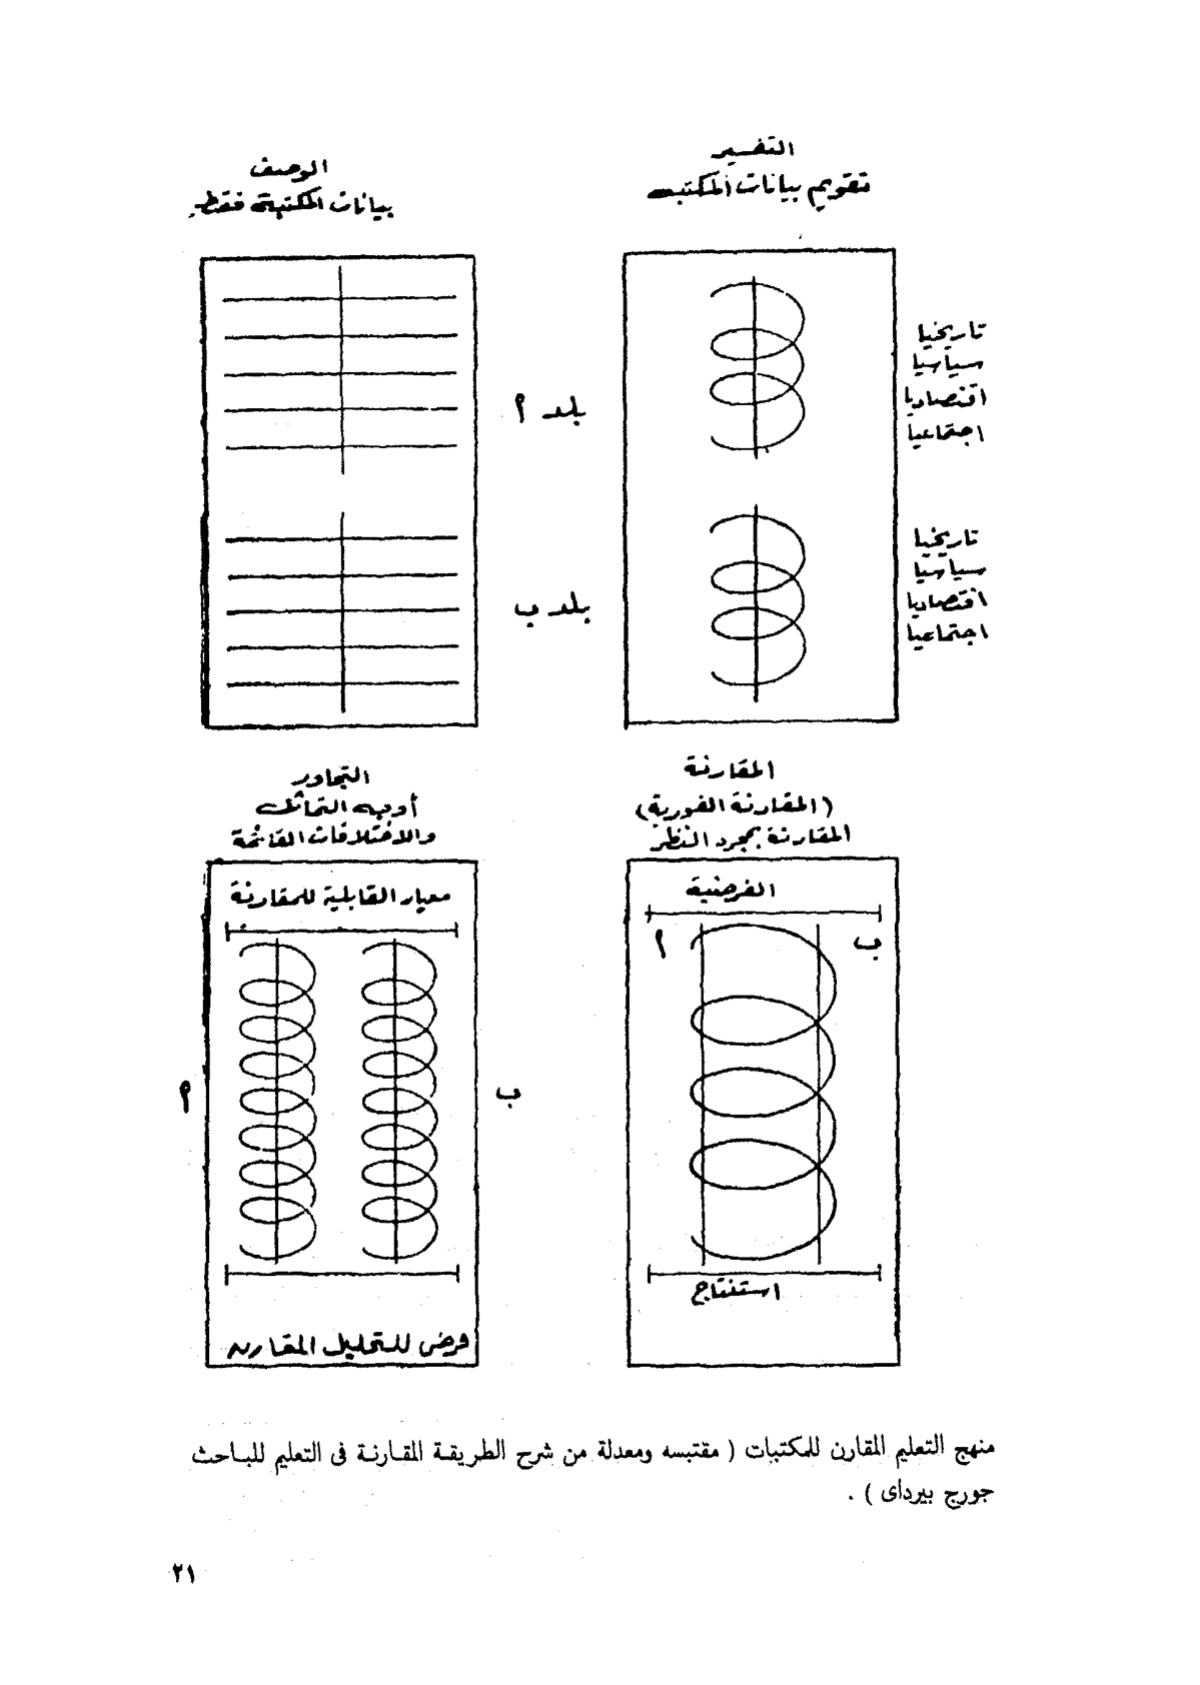 الوصف
بيانات المكتبية فقط
التفسير
تقويم بيانات المكتبه
بلد أ
تاريخيا
سياسيا
اقتصاديا
اجتماعيا
بلد ب
تاريخيا
سياسيا
اقتصاديا
اجتماعيا
التجاور
أوجه التماثل
والاختلافات القائمة
معيار القابلية للمقارنة
أ
ب
فرض للتحليل المقارن
المقارنة
(المقارنة الفورية)
المقارنة بمجرد النظر
الفرضية
أ
ب
استنتاج
منهج التعليم المقارن للمكتبات ( مقتبسه ومعدلة من شرح الطريقة المقارنة فى التعليم للباحث
جورج بيرداى ) .
٢١